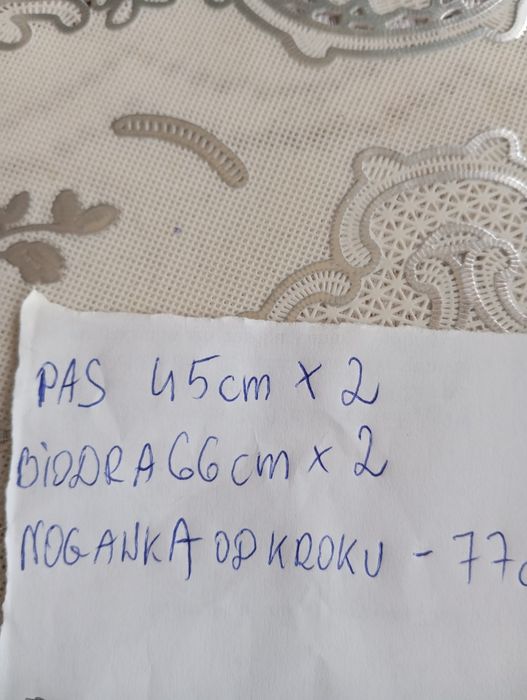 PAS 45cm x 2
BIODRA 66cm x 2
NOGAWKA OD KROKU - 77c